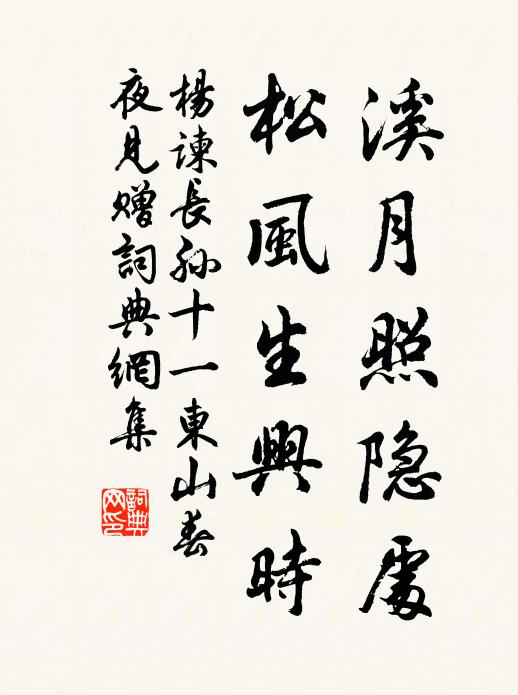 溪月照隐處
松風生興時
楊諫長孙十一東山春
夜見贈詞典網集
詞典网印